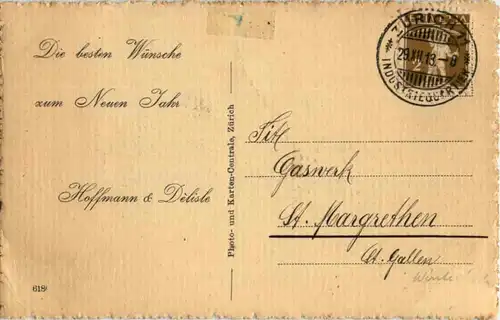 ZÜRICH
29.XII.13.-8
INDUSTRIEQUARTIER
Die besten Wünsche
zum Neuen Jahr
Hoffmann & Délisle
Photo- und Karten-Centrale, Zürich
Titl
Gaswerk
St. Margrethen
St. Gallen
618